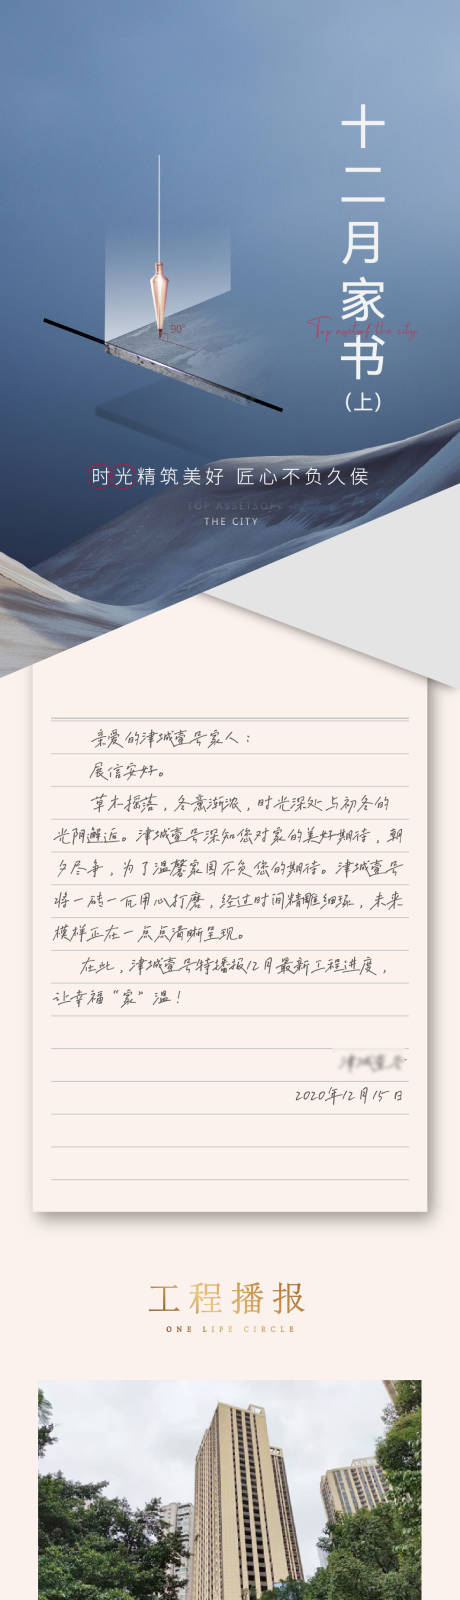 十二月家书
(上)
Top asset of the city
90°
时光精筑美好 匠心不负久侯
TOP ASSETSOF
THE CITY
亲爱的津城壹号家人：
展信安好。
草木摇落，冬意渐浓，时光深处与初冬的
光阴邂逅。津城壹号深知您对家的美好期待，朝
夕尽争，为了温馨家园不负您的期待。津城壹号
将一砖一瓦用心打磨，经过时间精雕细琢，未来
模样正在一点点清晰呈现。
在此，津城壹号特播报12月最新工程进度，
让幸福“家”温！
2020年12月15日
工程播报
ONE LIFE CIRCLE